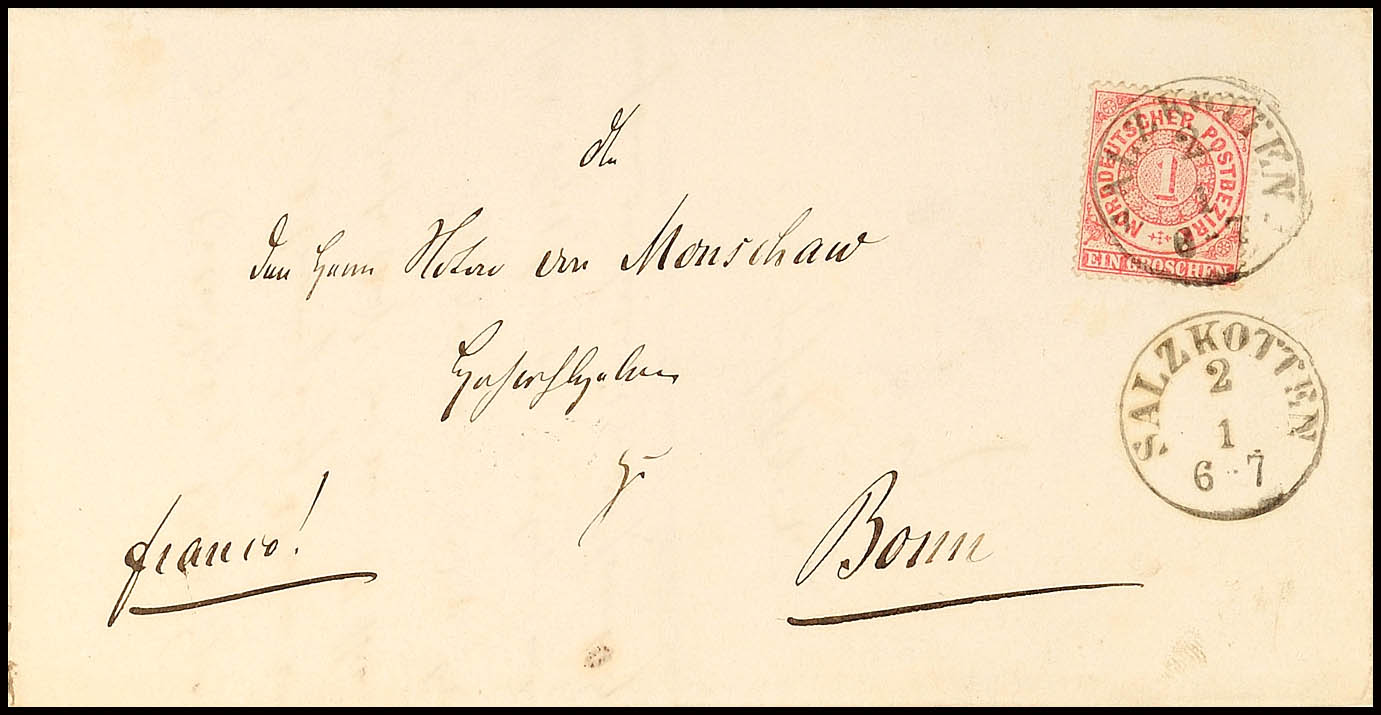 An
den Herrn Notar von Monschaw
Hochwohlgeboren
franco!
Bonn
NORDDEUTSCHER POSTBEZIRK
1
EIN GROSCHEN
SALZKOTTEN
2
1
6-7
SALZKOTTEN
2
1
6-7